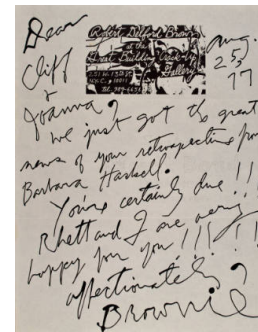 Dear
Cliff
&
Joanna,
Robert Delford Brown
at the
Great Building Crack-Up
Gallery
251 W. 13th St.
N.Y.C. 10011
Aug.
25,
77
we just got the great
news of your retrospective from
Barbara Haskell.
You're certainly due !!
Rhett and I are very
happy for you !!!!!
affectionately,
Brownie